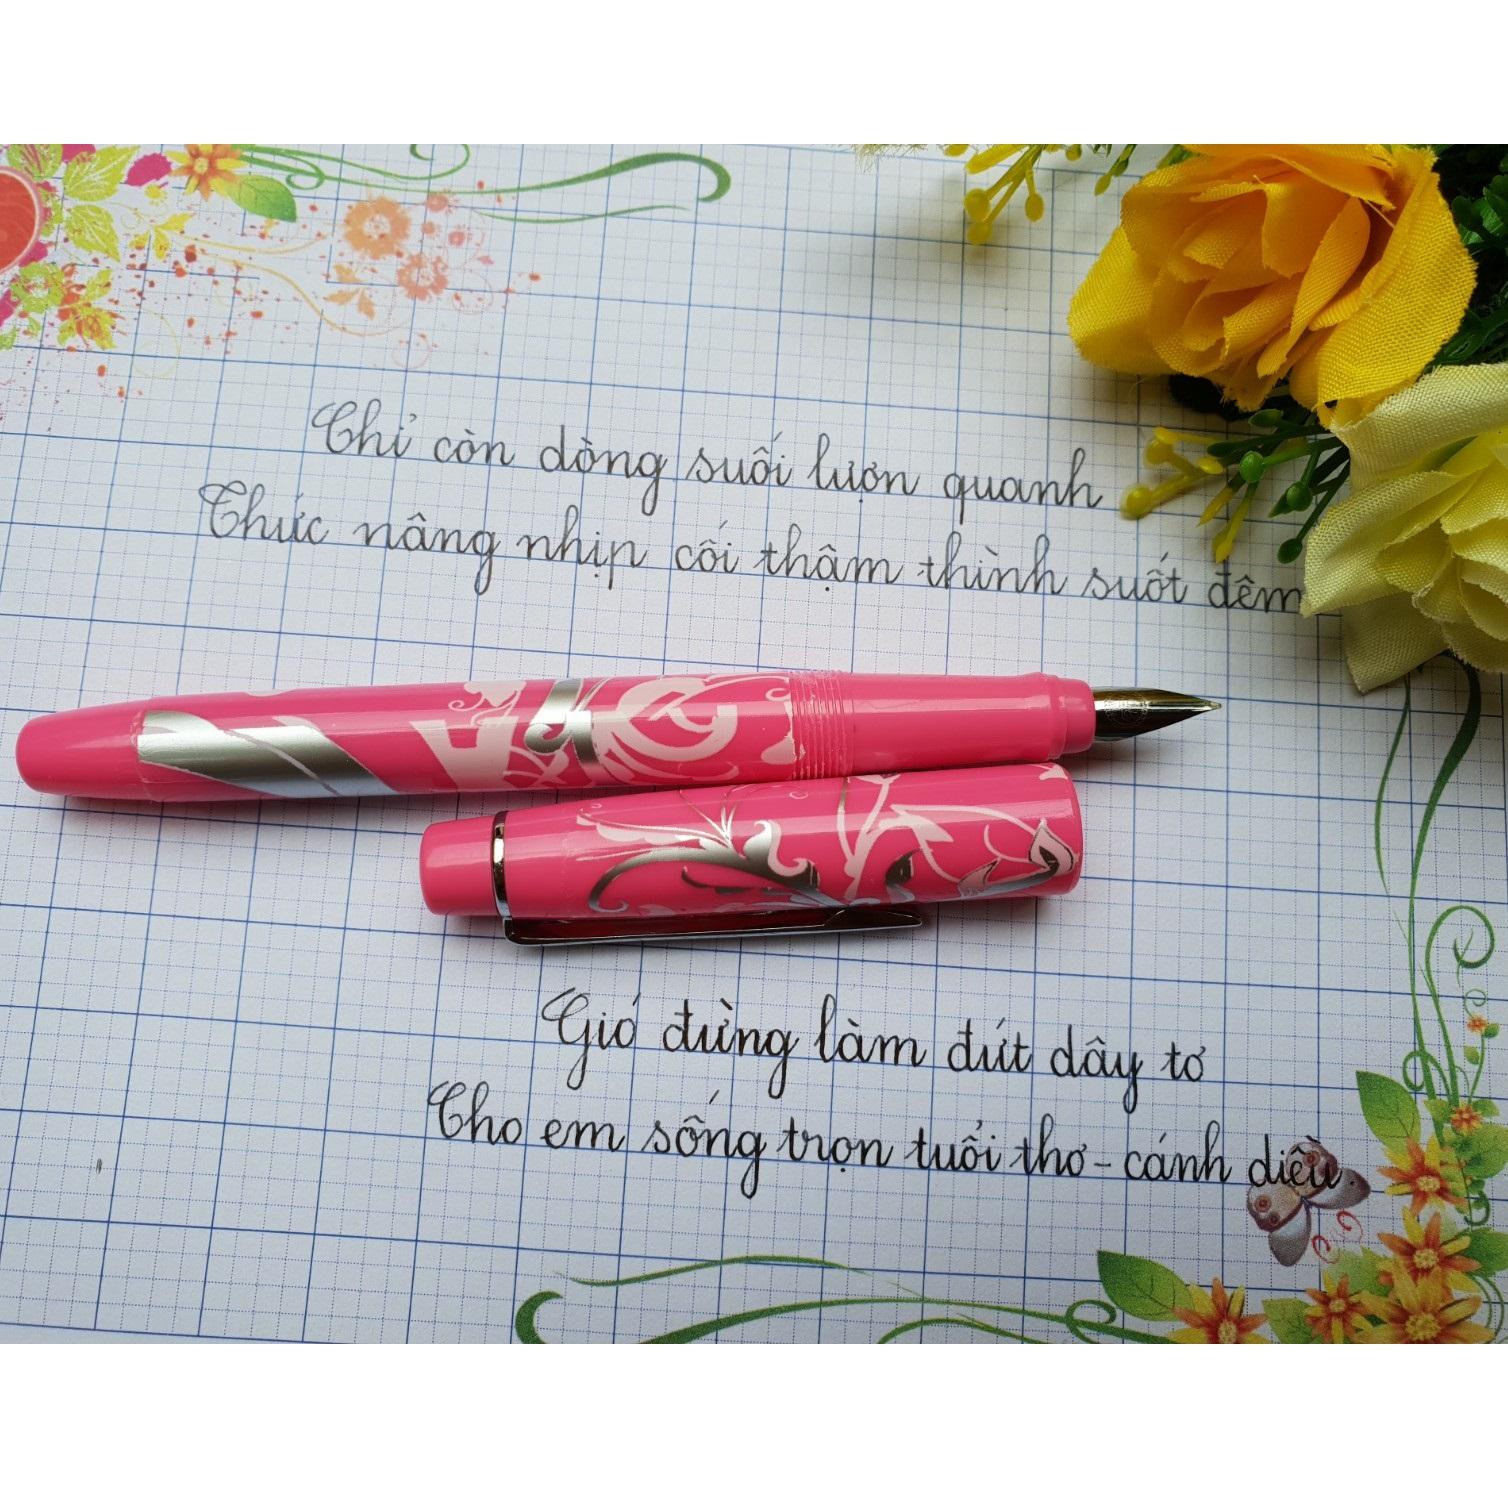 Chỉ còn dòng suối lượn quanh
Thức nâng nhịp cối thậm thình suốt đêm
Gió đừng làm đứt dây tơ
Cho em sống trọn tuổi thơ - cánh diều.